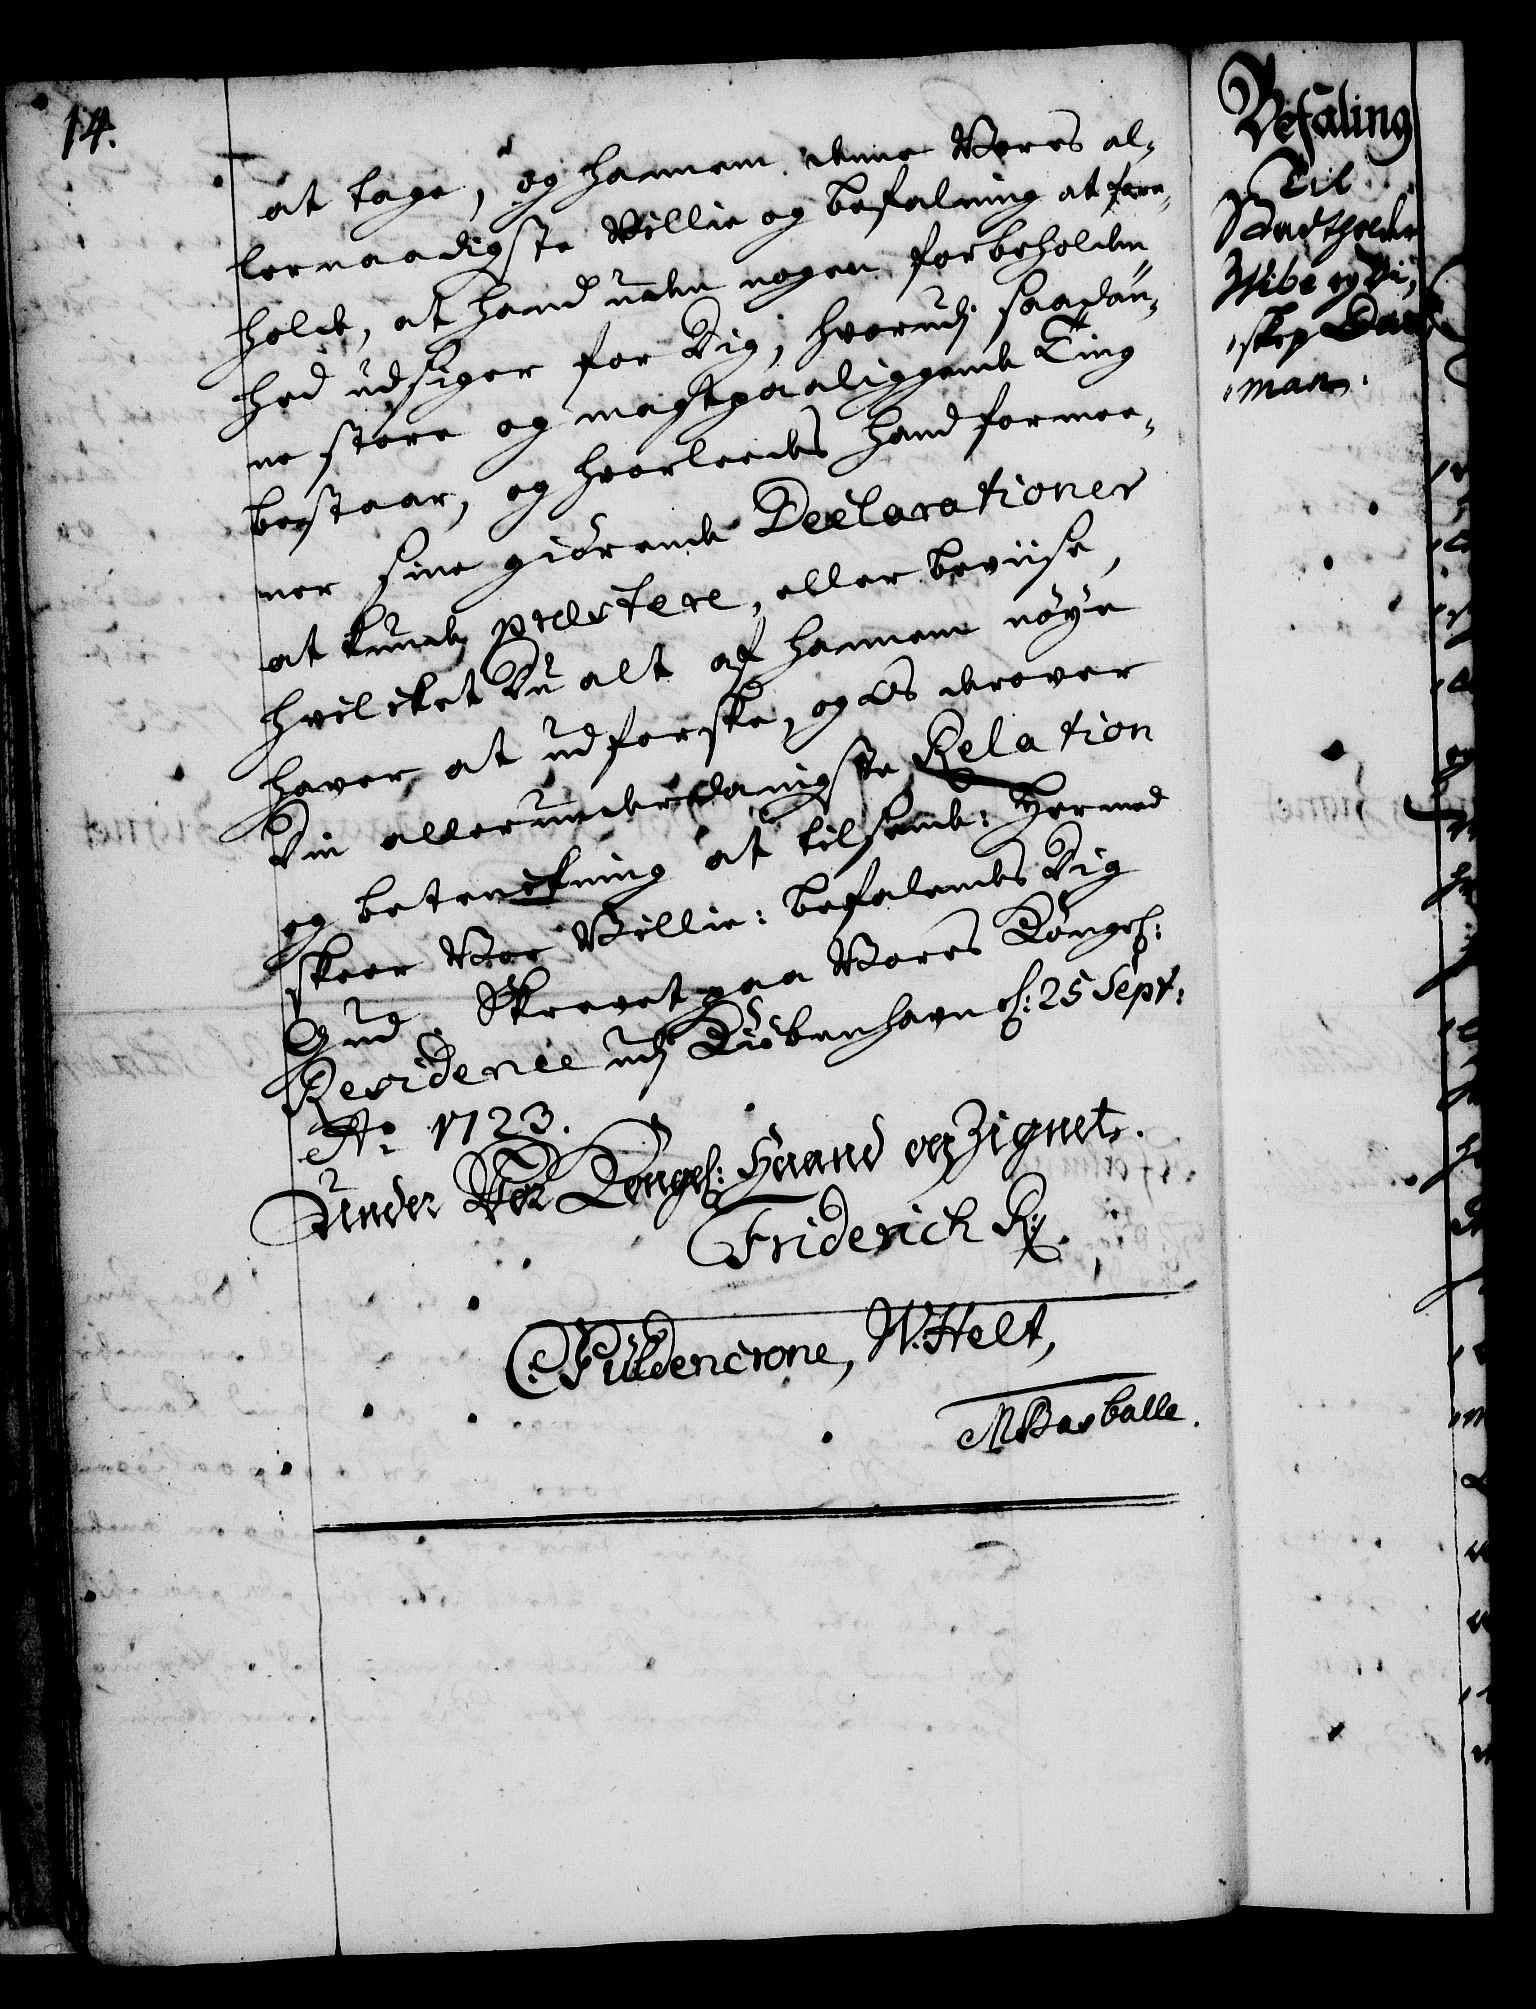 14.
at tage, og hannem denne Vores al-
lernaadigste Villie og befalning at fore-
holde, at hand uden nogen forbeholden-
hed udsiger for Dig, hvorudj saadan-
ne store og magtpaaliggende Ting
bestaar, og hvorleedes hand formee-
ner sine giörende Declarationer
at kunde præstere, eller beviise,
hvilcket Du alt af hannem nöye
haver at udforske, og Os derover
Din allerunderdanigste Relation
og betenckning at tilsende: Hermed
skeer Vor Villie: befalendes Dig
Gud. Skrevet paa Vores Kongel:
Residence udj Kiöbenhavn d: 25 Sept:
Ao 1723.
Under Vor Kongel: Haand og Zignet.
Friderich R.
C: Güldencrone, W. Helt,
M Basballe.
Befaling
Til
Stadtholder
Wibe og Bi-
skop Deich-
man.